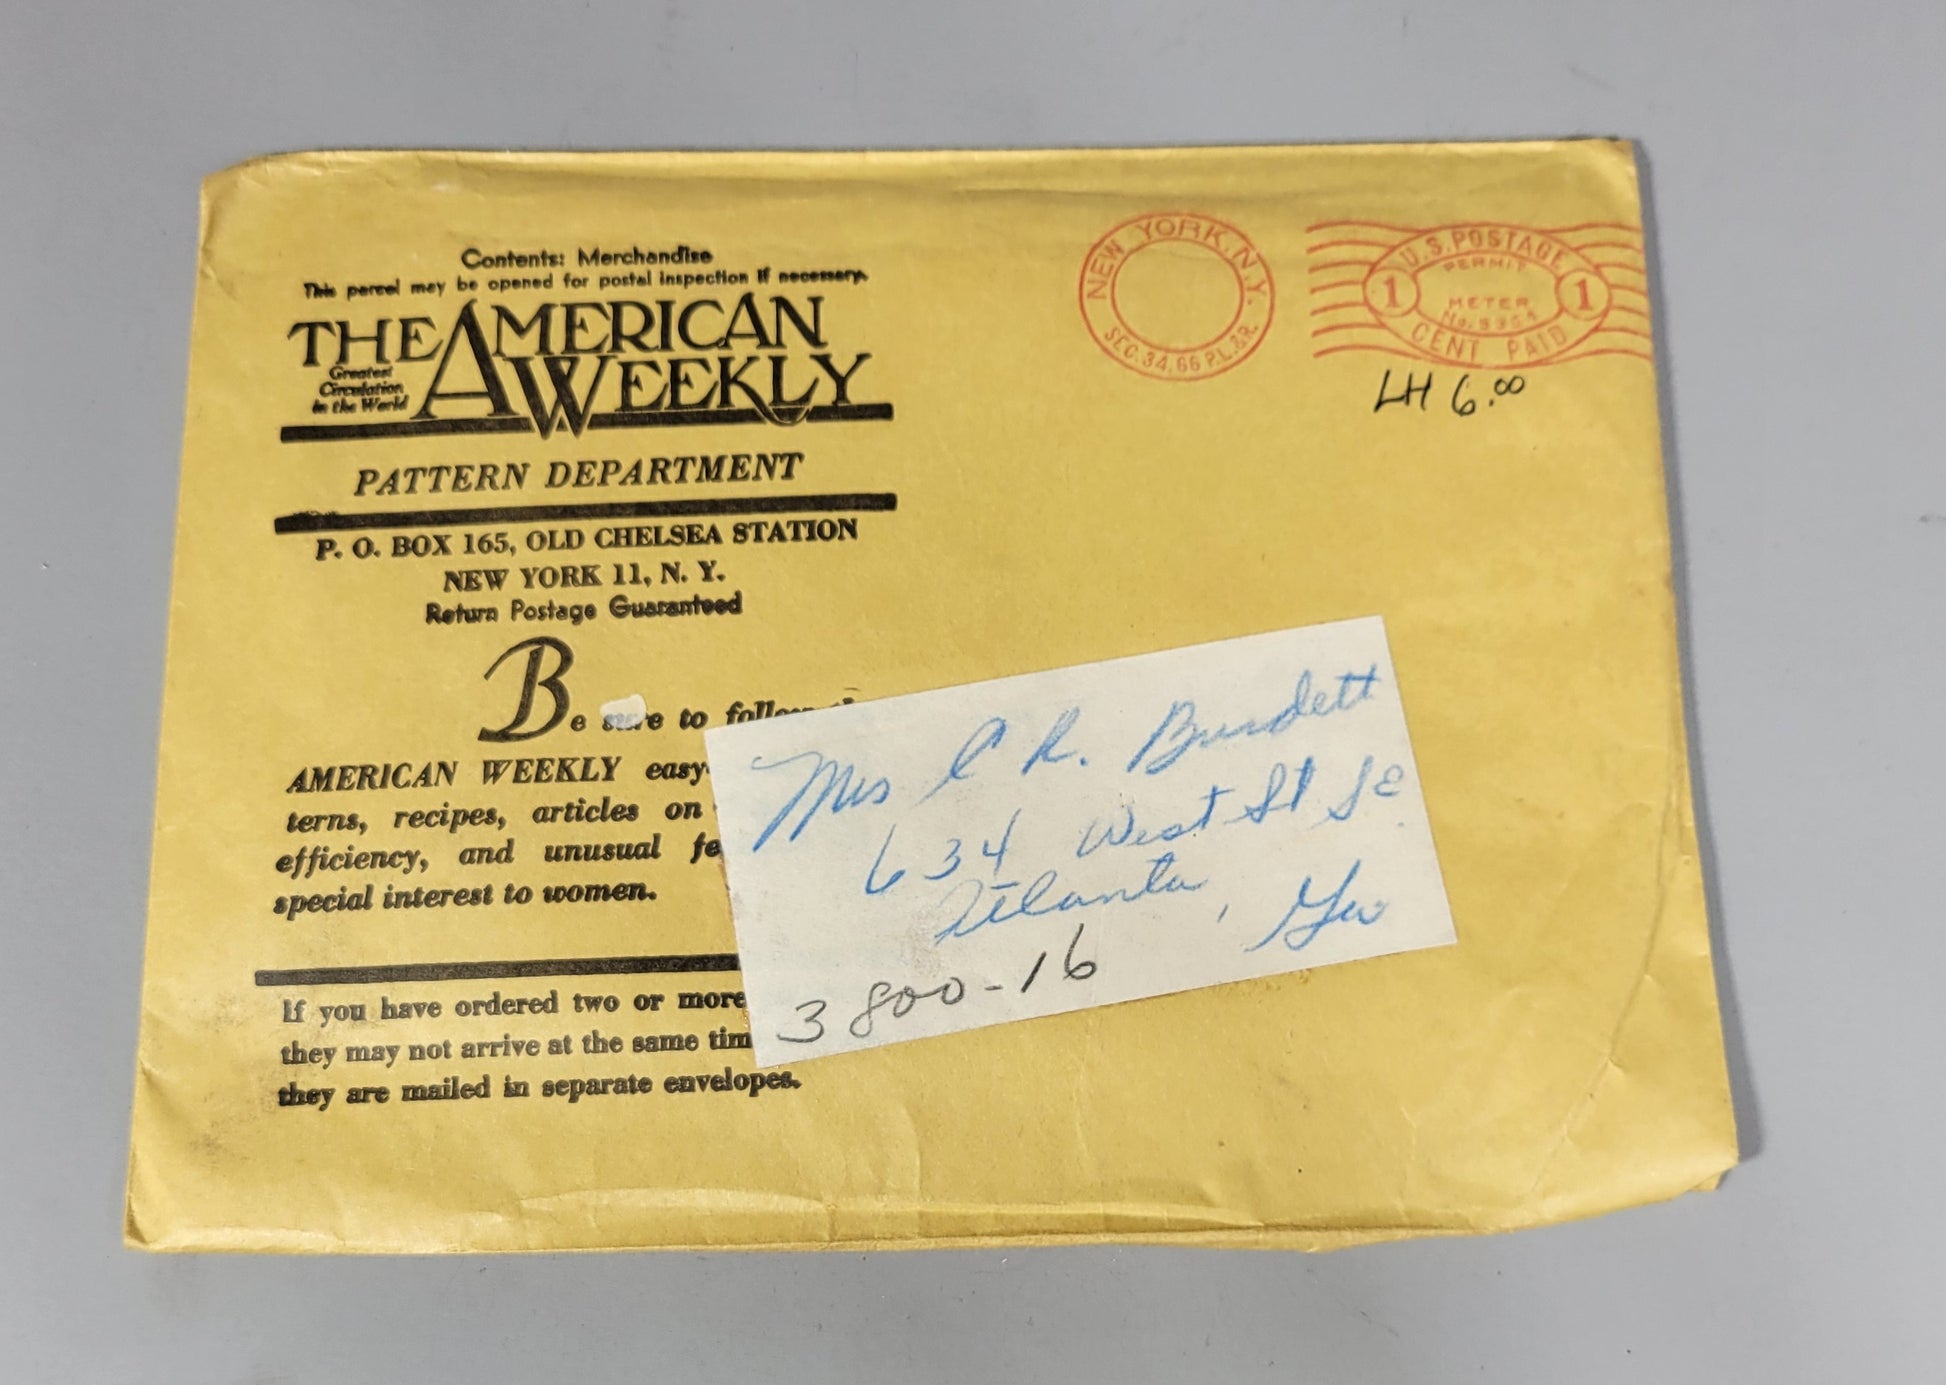 Contents: Merchandise
This parcel may be opened for postal inspection if necessary.
THE AMERICAN WEEKLY
Greatest
Circulation
in the World
PATTERN DEPARTMENT
P. O. BOX 165, OLD CHELSEA STATION
NEW YORK 11, N. Y.
Return Postage Guaranteed
Be sure to follow
AMERICAN WEEKLY easy
terns, recipes, articles on
efficiency, and unusual fe
special interest to women.
If you have ordered two or more
they may not arrive at the same tim
they are mailed in separate envelopes.
NEW YORK, N.Y.
SEC. 34.66 P.L.&R.
U.S. POSTAGE
PERMIT
1 1
METER
CENT PAID
LH 6.00
Mrs C R. Burdett
634 West St SE
Atlanta, Ga
3800-16